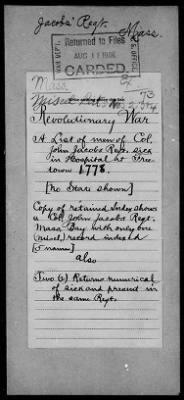 Jacobs' Regt.
Mass.
Returned to Files
AUG 11
CARDED.
Mass
73
Revolutionary War
A List of men of Col.
John Jacobs Regt. sick
in Hospital at Tree-
town 1778.
[No State shown]
Copy of retained only shows
a Col. John Jacobs Regt.
Mass. Bay with only one
(miscl.) record indexed
[F name]
also
Two (2) Returns numerical
of sick and present in
the same Regt.